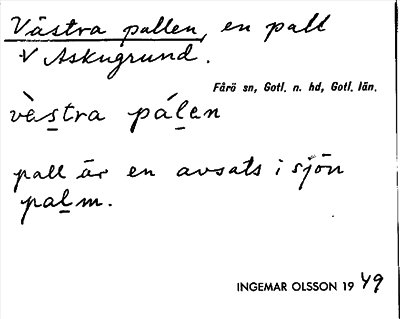 Västra pallen, en pall
V Askugrund.
Fårö sn, Gotl. n. hd, Gotl. län.
vè̱stra páḻen
pall är en avsats i sjön
paḻm.
INGEMAR OLSSON 1949